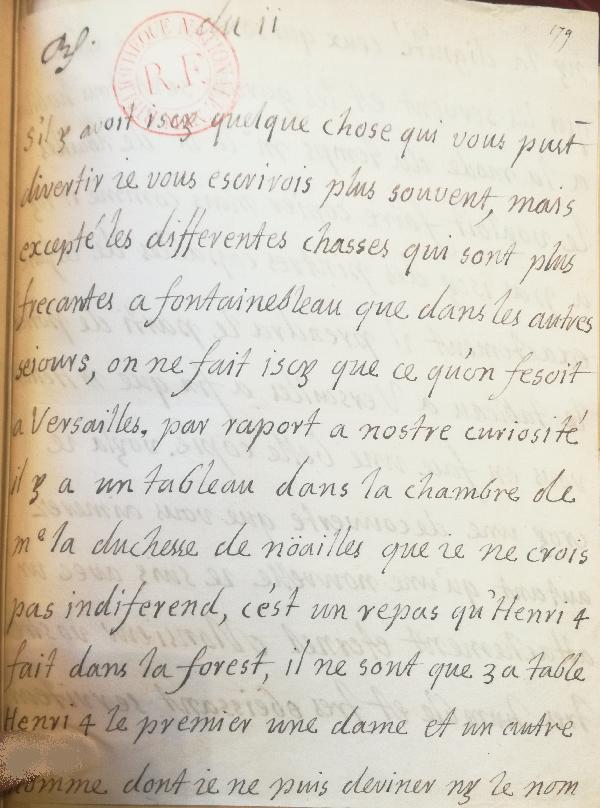 Rf. du ii
179
BIBLIOTHEQUE NATIONALE
R.F.
s'il y avoit iscy quelque chose qui vous pust
divertir ie vous escrirois plus souvent, mais
excepté les differentes chasses qui sont plus
frecantes a fontainebleau que dans les autres
sejours, on ne fait iscy que ce qu'on fesoit
a Versailles. par raport a nostre curiosité
il y a un tableau dans la chambre de
me la duchesse de nöailles que ie ne crois
pas indiferend, c'est un repas qu'Henri 4
fait dans la forest, il ne sont que 3 a table
Henri 4 le premier une dame et un autre
homme dont ie ne puis deviner ny le nom